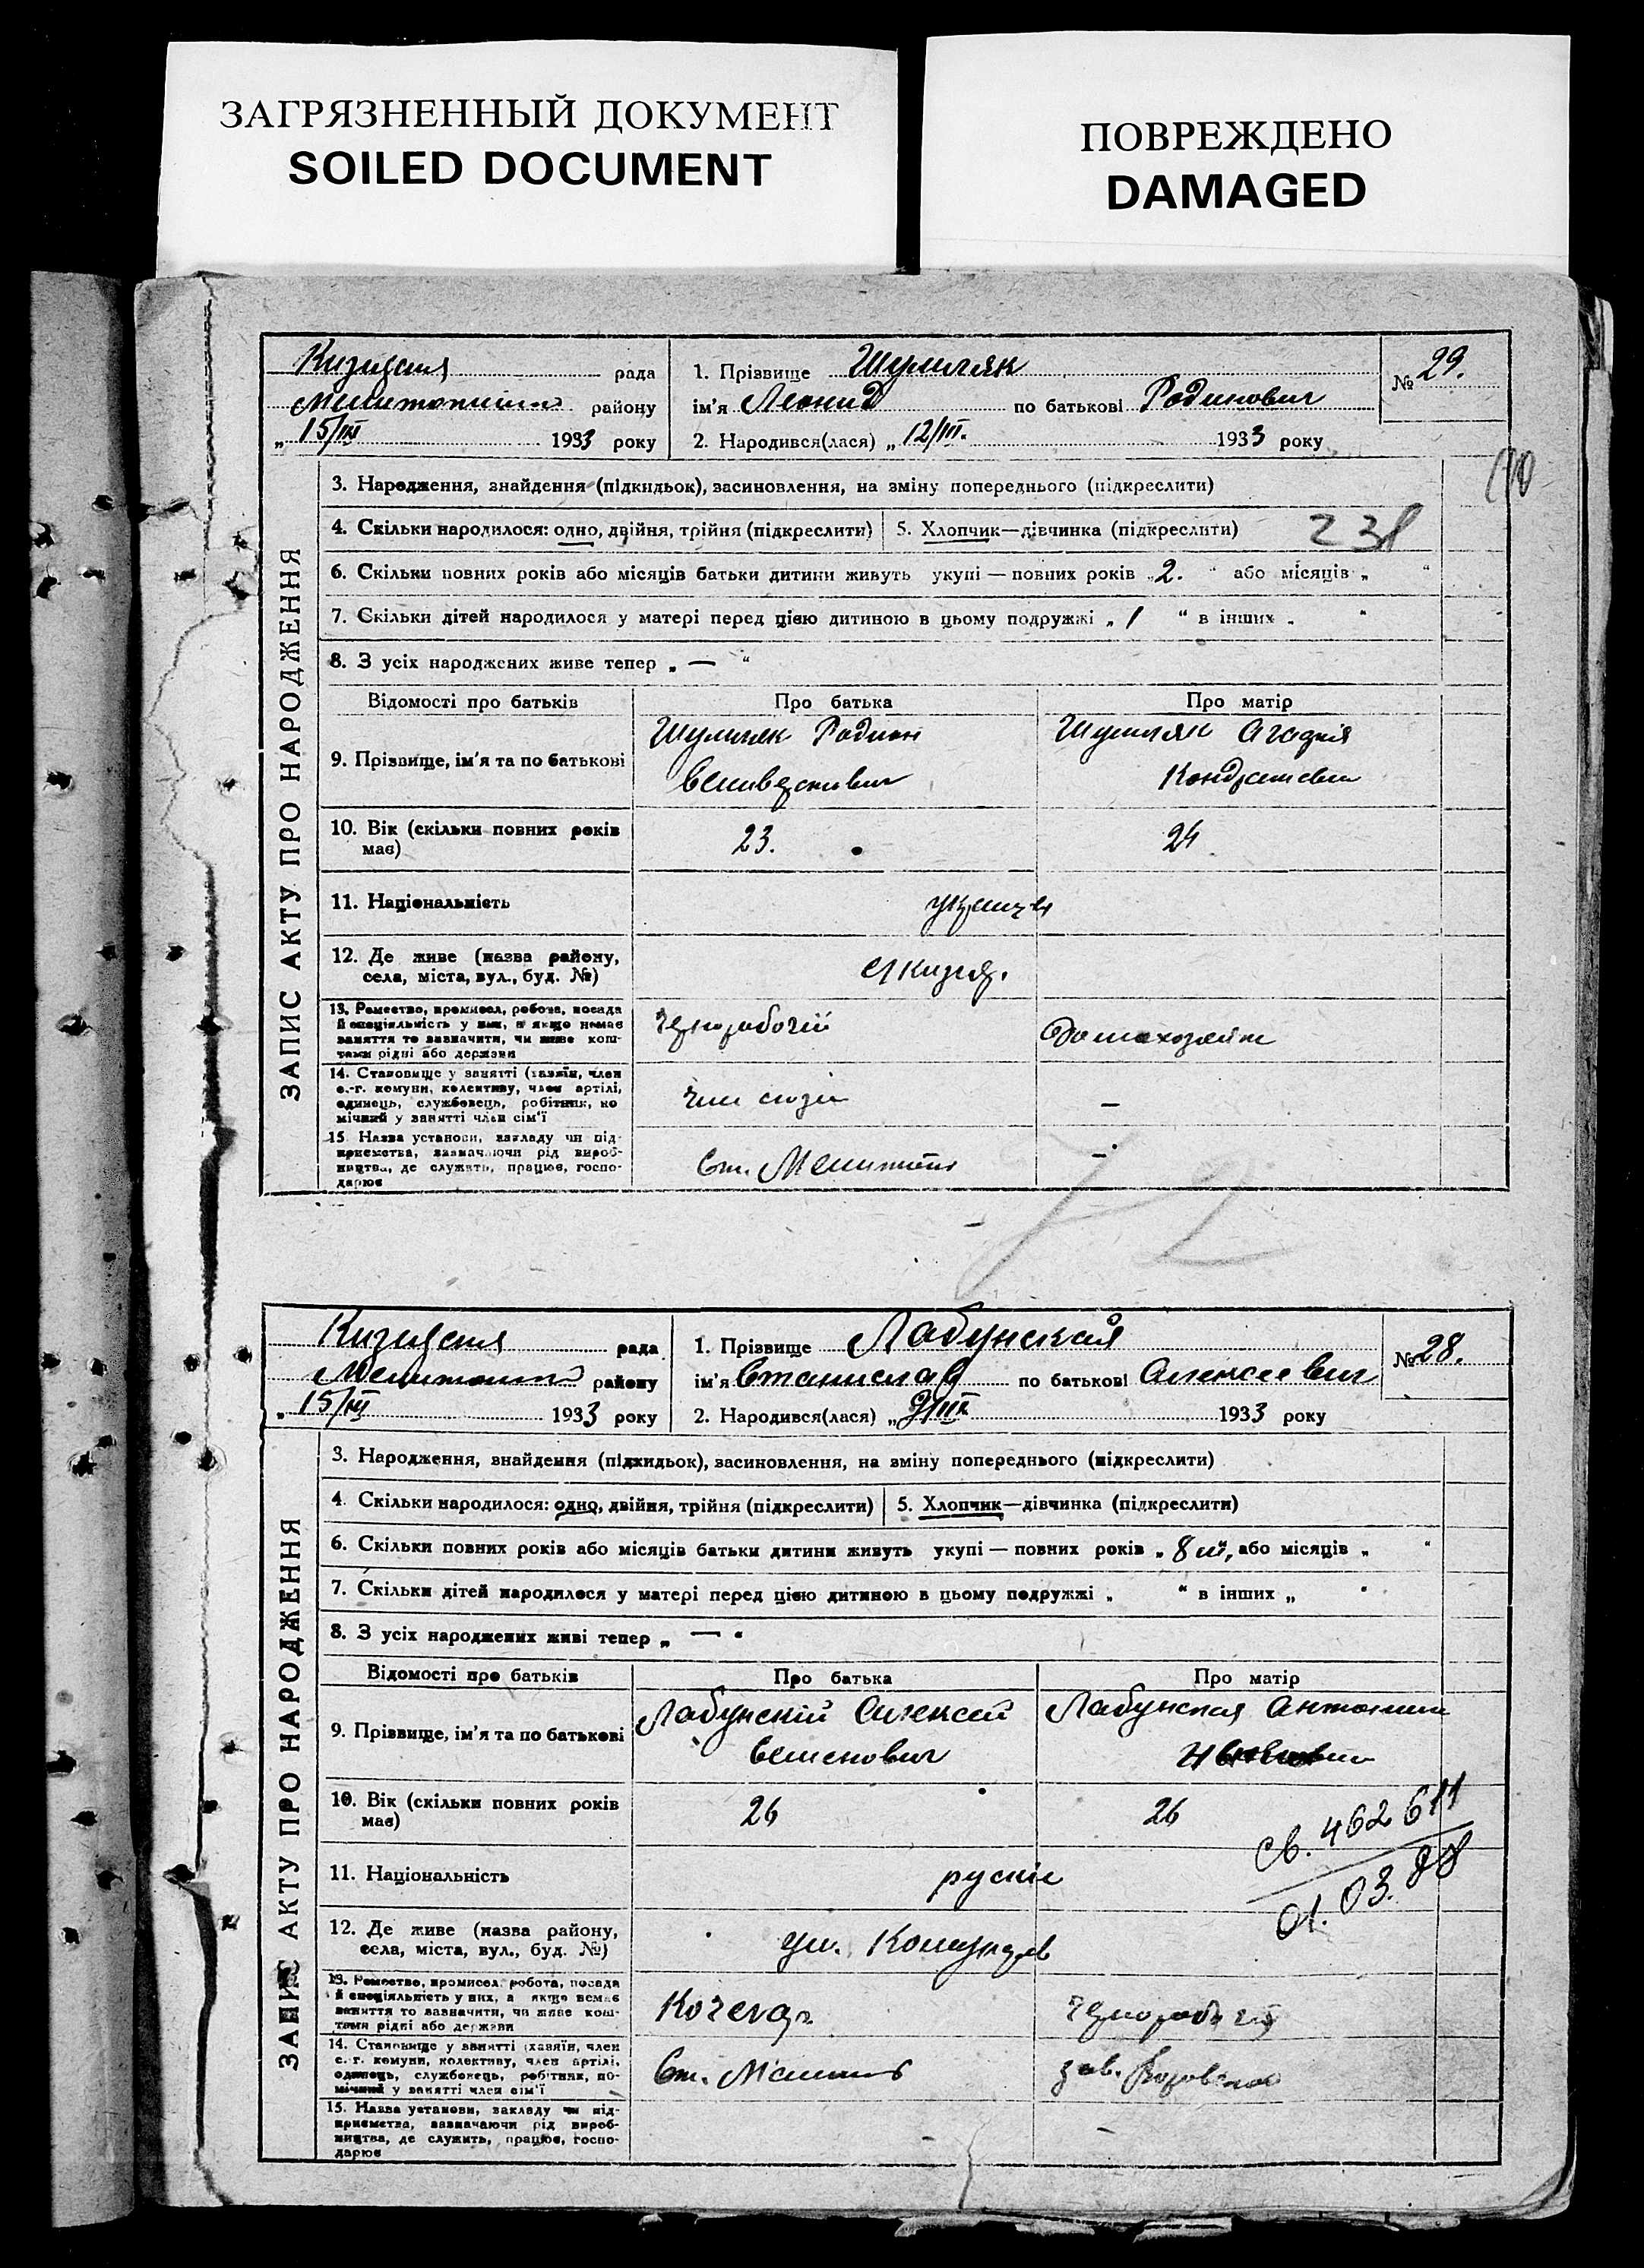 ЗАГРЯЗНЕННЫЙ ДОКУМЕНТ
SOILED DOCUMENT
ПОВРЕЖДЕНО
DAMAGED
ЗАПИС АКТУ ПРО НАРОДЖЕННЯ
рада
району
„ 15/III 1933 року
1. Прізвище Шумиляк
ім'я Леонид по батькові Родинович
2. Народився(лася) „ 12/III. 1933 року
№ 29.
3. Народження, знайдення (підкидьок), засиновлення, на зміну попереднього (підкреслити)
4. Скільки народилося: одно, двійня, трійня (підкреслити)
5. Хлопчик—дівчинка (підкреслити)
238
6. Скільки повних років або місяців батьки дитини живуть укупі — повних років „ 2. “ або місяців „ “
7. Скільки дітей народилося у матері перед цією дитиною в цьому подружжі „ 1 “ в інших „ “
8. З усіх народжених живе тепер „ — “
Відомості про батьків
Про батька
Про матір
9. Прізвище, ім'я та по батькові
Родион
10. Вік (скільки повних років має)
23.
24
11. Національність
12. Де живе (назва району, села, міста, вул., буд. №)
13. Ремество, промисел, робота, посада
й спеціяльність у них, а якщо немає
заняття то зазначити, чи живе кош-
тами рідні або держави
чернорабочій
Домахозяйка
14. Становище у занятті (хазяїн, член
с.-г. комуни, колективу, член артілі,
одинець, службовець, робітник, по
мічний у занятті член сім'ї
—
15. Назва установи, закладу чи під-
приємства, зазначаючи рід вироб-
ництва, де служить, працює, госпо-
дарює
—
ЗАПИС АКТУ ПРО НАРОДЖЕННЯ
рада
району
„ 15/III 1933 року
1. Прізвище Лабунская
ім'я Станислав по батькові Алексеевич
2. Народився(лася) „ 9/III 1933 року
№ 28.
3. Народження, знайдення (підкидьок), засиновлення, на зміну попереднього (підкреслити)
4. Скільки народилося: одно, двійня, трійня (підкреслити)
5. Хлопчик—дівчинка (підкреслити)
6. Скільки повних років або місяців батьки дитини живуть укупі — повних років „ 8 або місяців „ “
7. Скільки дітей народилося у матері перед цією дитиною в цьому подружжі „ “ в інших „ “
8. З усіх народжених живі тепер „ — “
Відомості про батьків
Про батька
Про матір
9. Прізвище, ім'я та по батькові
Лабунскій Алексей
Семенович
Лабунская Антонина
10. Вік (скільки повних років має)
26
26
св. 462611
01.03.88
11. Національність
рускіе
12. Де живе (назва району, села, міста, вул., буд. №)
ул.
13. Ремество, промисел робота, посада
й спеціяльність у них, а якщо немає
заняття то зазначити, чи живе кош-
тами рідні або держави
Кочегар
чернорабочій
14. Становище у занятті (хазяїн, член
с.-г. комуни, колективу, член артілі,
одинець, службовець, робітник, по-
мічний у занятті член сім'ї
зав.
15. Назва установи, закладу чи під-
приємства, зазначаючи рід вироб-
ництва, де служить, працює, госпо-
дарює